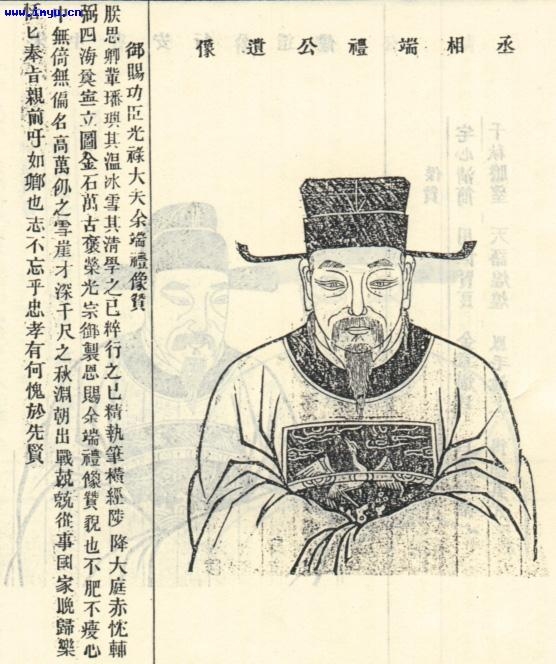 丞相端禮公遺像
御賜功臣光祿大夫余端禮像贊
朕思卿輩璠璵其溫冰雪其清學之已粹行之已精執筆橫經陟降大庭赤忱輔
弼四海奠寧立圖金石萬古褒榮光宗御製恩賜余端禮像贊貌也不肥不瘦心
中無倚無偏名高萬仞之雪崖才深千尺之秋淵朝出戰兢兢從事國家晚歸樂
怡匕奉旨親前吁如卿也志不忘乎忠孝有何愧於先賢